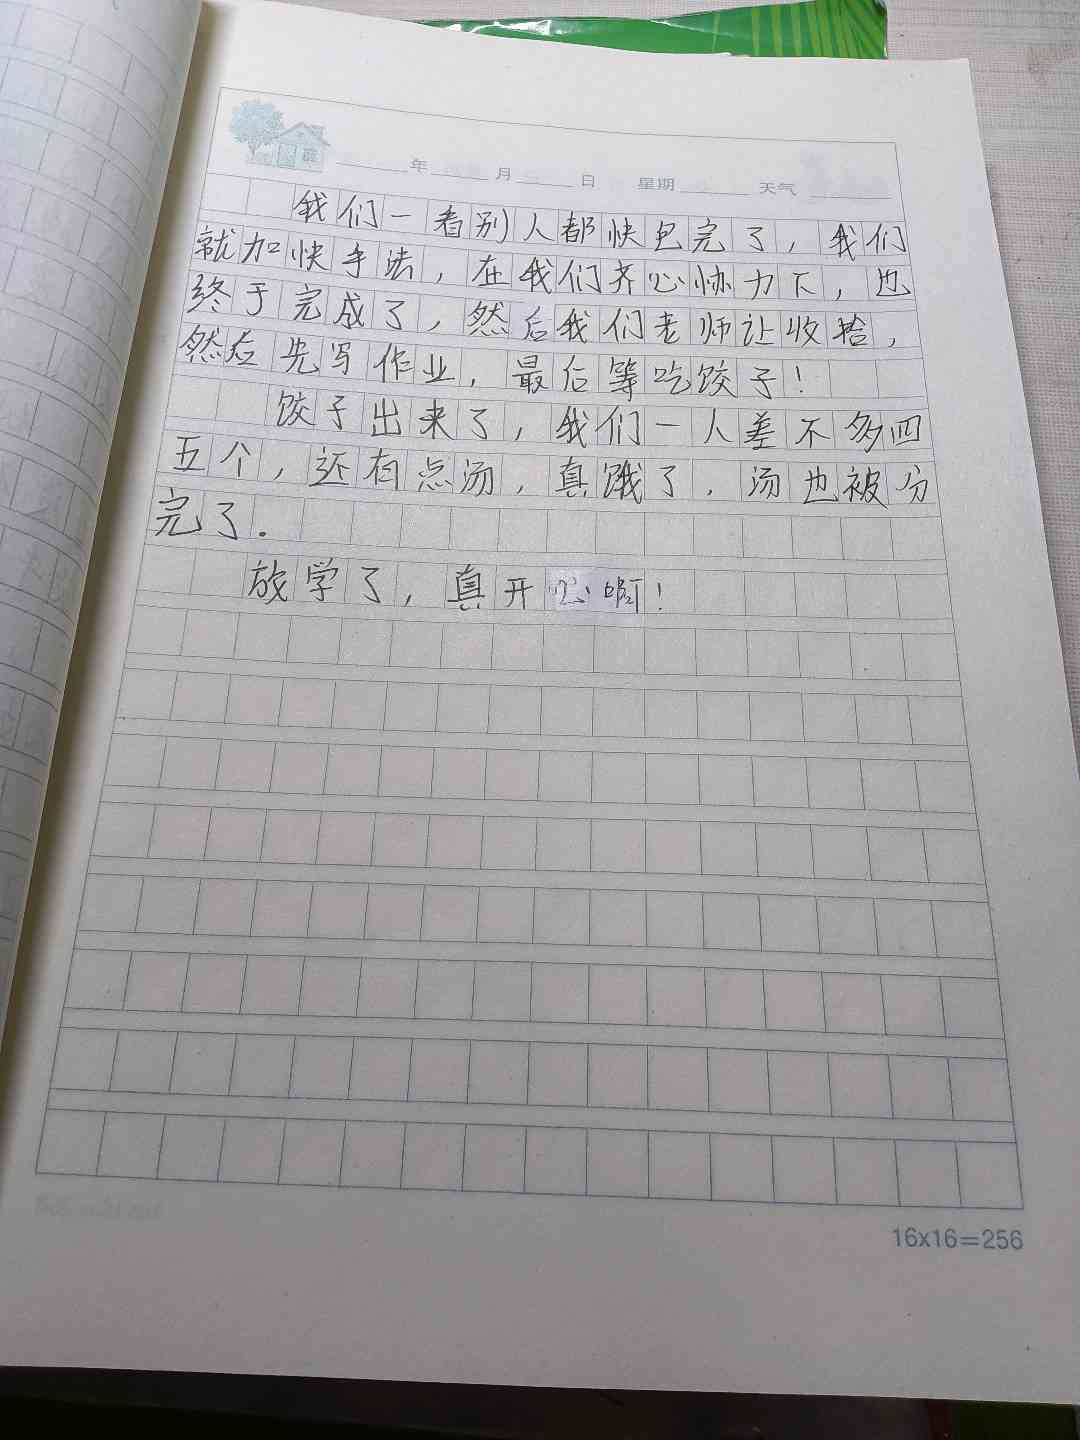 年 月 日 星期 天气
我们一看别人都快包完了，我们
就加快手法，在我们齐心协力下，也
终于完成了，然后我们老师让收拾，
然后先写作业，最后等吃饺子！
饺子出来了，我们一人差不多四
五个，还有点汤，真饿了，汤也被分
完了.
放学了，真开心啊！
16x16=256